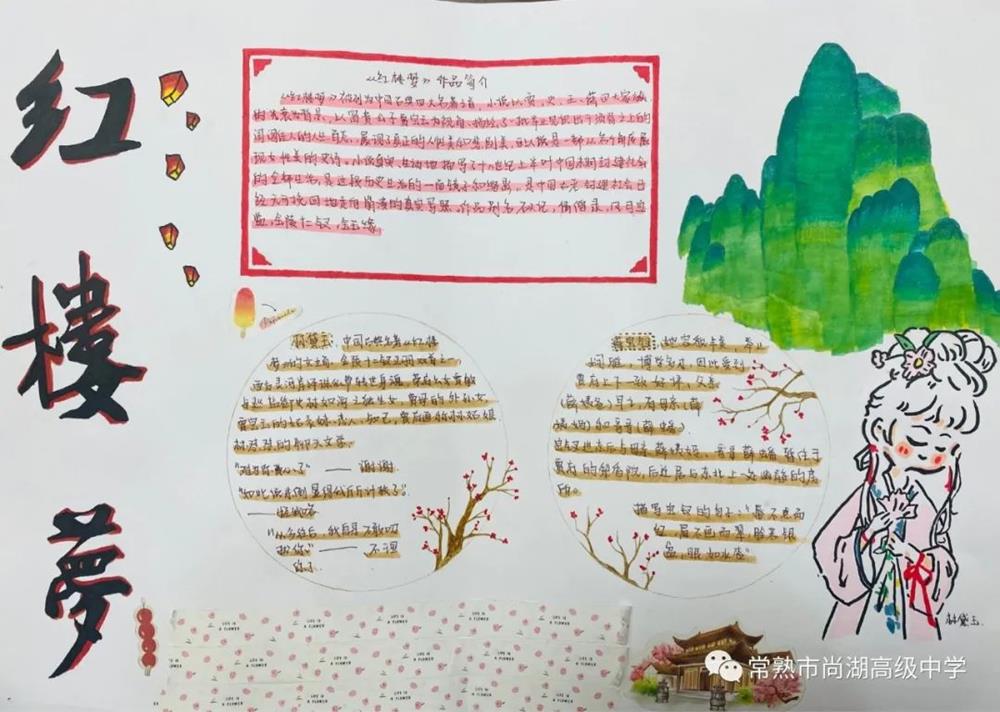 红楼梦
《红楼梦》作品简介
《红楼梦》被列为中国古典四大名著之首，小说以贾、史、王、薛四大家族
的兴衰为背景，以富贵公子贾宝玉为视角，描绘了一批举止见识出于须眉之上的
闺阁佳人的人生百态，展现了真正的人性美和悲剧美，可以说是一部从各个角度展
现女性美的史诗。小说真实生动地描写了十八世纪上半叶中国末期封建社会
的全部生活，是这段历史生活的一面镜子和缩影，是中国古老封建社会已
经无可挽回地走向崩溃的真实写照。作品别名，石头记，情僧录，风月宝
鉴，金陵十二钗，金玉缘
林黛玉，中国古典名著《红楼
梦》的女主角，金陵十二钗正册双首之一，
贾宝玉的姑表妹、恋人、知己，贾府通称林姑娘
—— 谢谢
“如此说来倒显得我斤斤计较了”
“从今以后，我自是不敢叨
扰你” —— 不理
你了
薛宝钗，她容貌丰美，举止
娴雅，博学多才，因此受到
贾府上下一致好评，父亲
（薛姨妈）和哥哥（薛蟠）
贾府的梨香院，后迁居与东北上一处幽静的房
所。
描写宝钗的句子：“唇不点而
红，眉不画而翠，脸若银
盆，眼如水杏”
林黛玉
LIFE IS
A FLOWER
常熟市尚湖高级中学